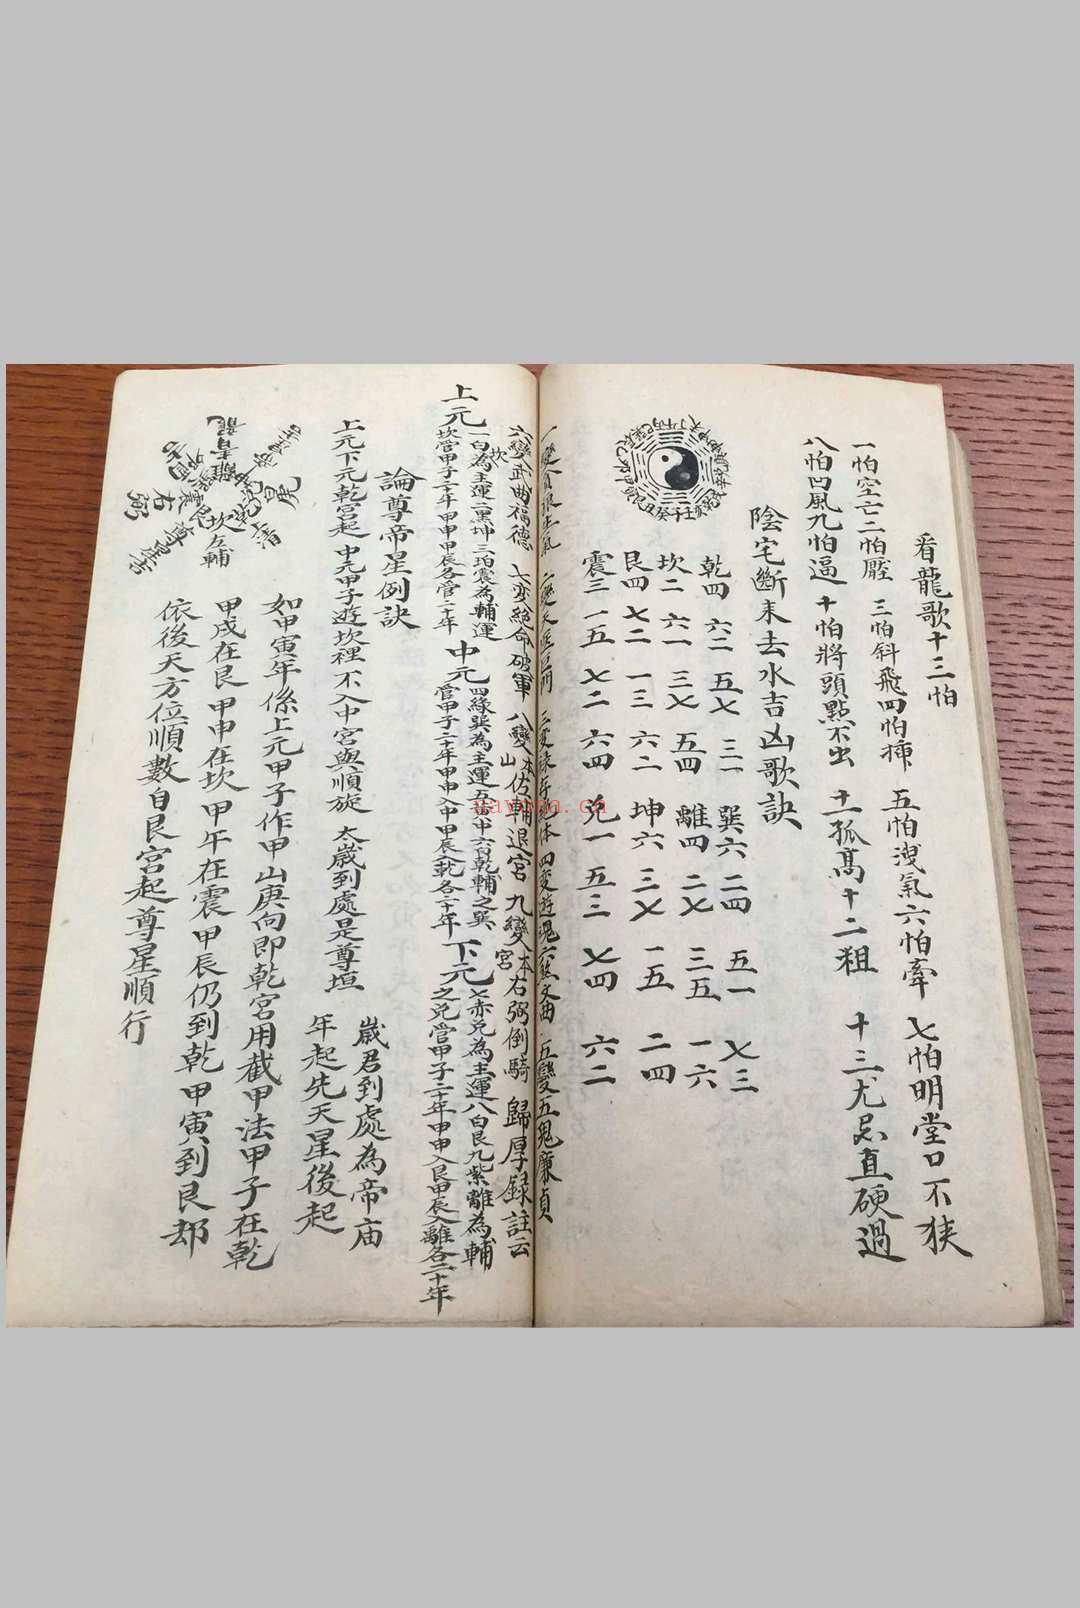 看龍歌十三怕
一怕空亡二怕壓 三怕斜飛四怕插 五怕洩氣六怕牽 七怕明堂口不狹
八怕凹風九怕逼 十怕將頭點不出 十一孤高十二粗 十三尤忌直硬過
陰宅斷來去水吉凶歌訣
乾四 六二 五七 三一 巽六 二四 五一 七三
坎二 六一 三七 五四 離四 二七 三五 一六
艮四 七二 一三 六二 坤六 三七 一五 二四
震三 一五 七二 六四 兌一 五三 七四 六二
五變五鬼廉貞
六變武曲福德 七变絕命破軍 八變本山佐輔退宮 九變本宮右弼倒騎 歸厚録註云
上元 一白為主運二黑坤三珀震為輔運
坎官甲子二十年甲申甲辰各管二十年
中元 四緑巽為主運五黃中六白乾輔之巽
官甲子二十年甲申入中甲辰入乾各二十年
下元 七赤兌為主運八白艮九紫離為輔
之兌管甲子二十年甲申入艮甲辰入離各二十年
論尊帝星例訣
上元下元乾宮起 中元甲子遊坎裡 不入中宮與順旋 太歲到處是尊垣
歲君到處為帝庙
年起先天星後起
如甲寅年係上元甲子作甲山庚向即乾宮用截甲法甲子在乾
甲戌在艮 甲申在坎 甲午在震 甲辰仍到乾 甲寅到艮却
依後天方位順數自艮宮起尊星順行
左輔
右弼
坎
震
離